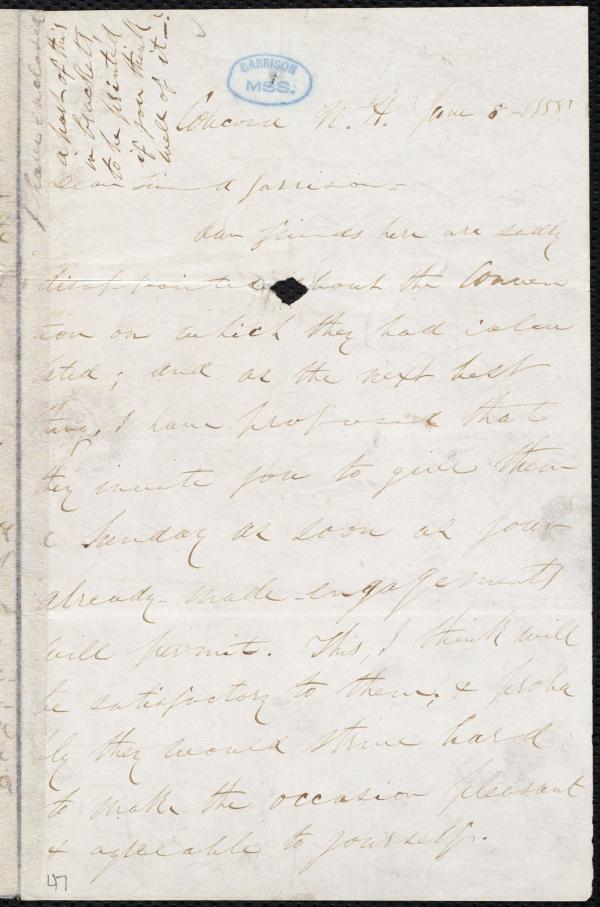 I have enclosed
a part of this
in brackets,
to be printed
if you think
well of it—
GARRISON
MSS.
Concord N. H. June 8 1858
Dear Friend Garrison—
Our friends here are sadly
disappointed about the Conven
tion on which they had calcu
lated; and as the next best
thing, I have proposed that
they invite you to give them
a Sunday as soon as your
already-made-engagements
will permit. This, I think will
be satisfactory to them, & proba
bly they would strive hard
to make the occasion pleasant
& agreeable to yourself.
47